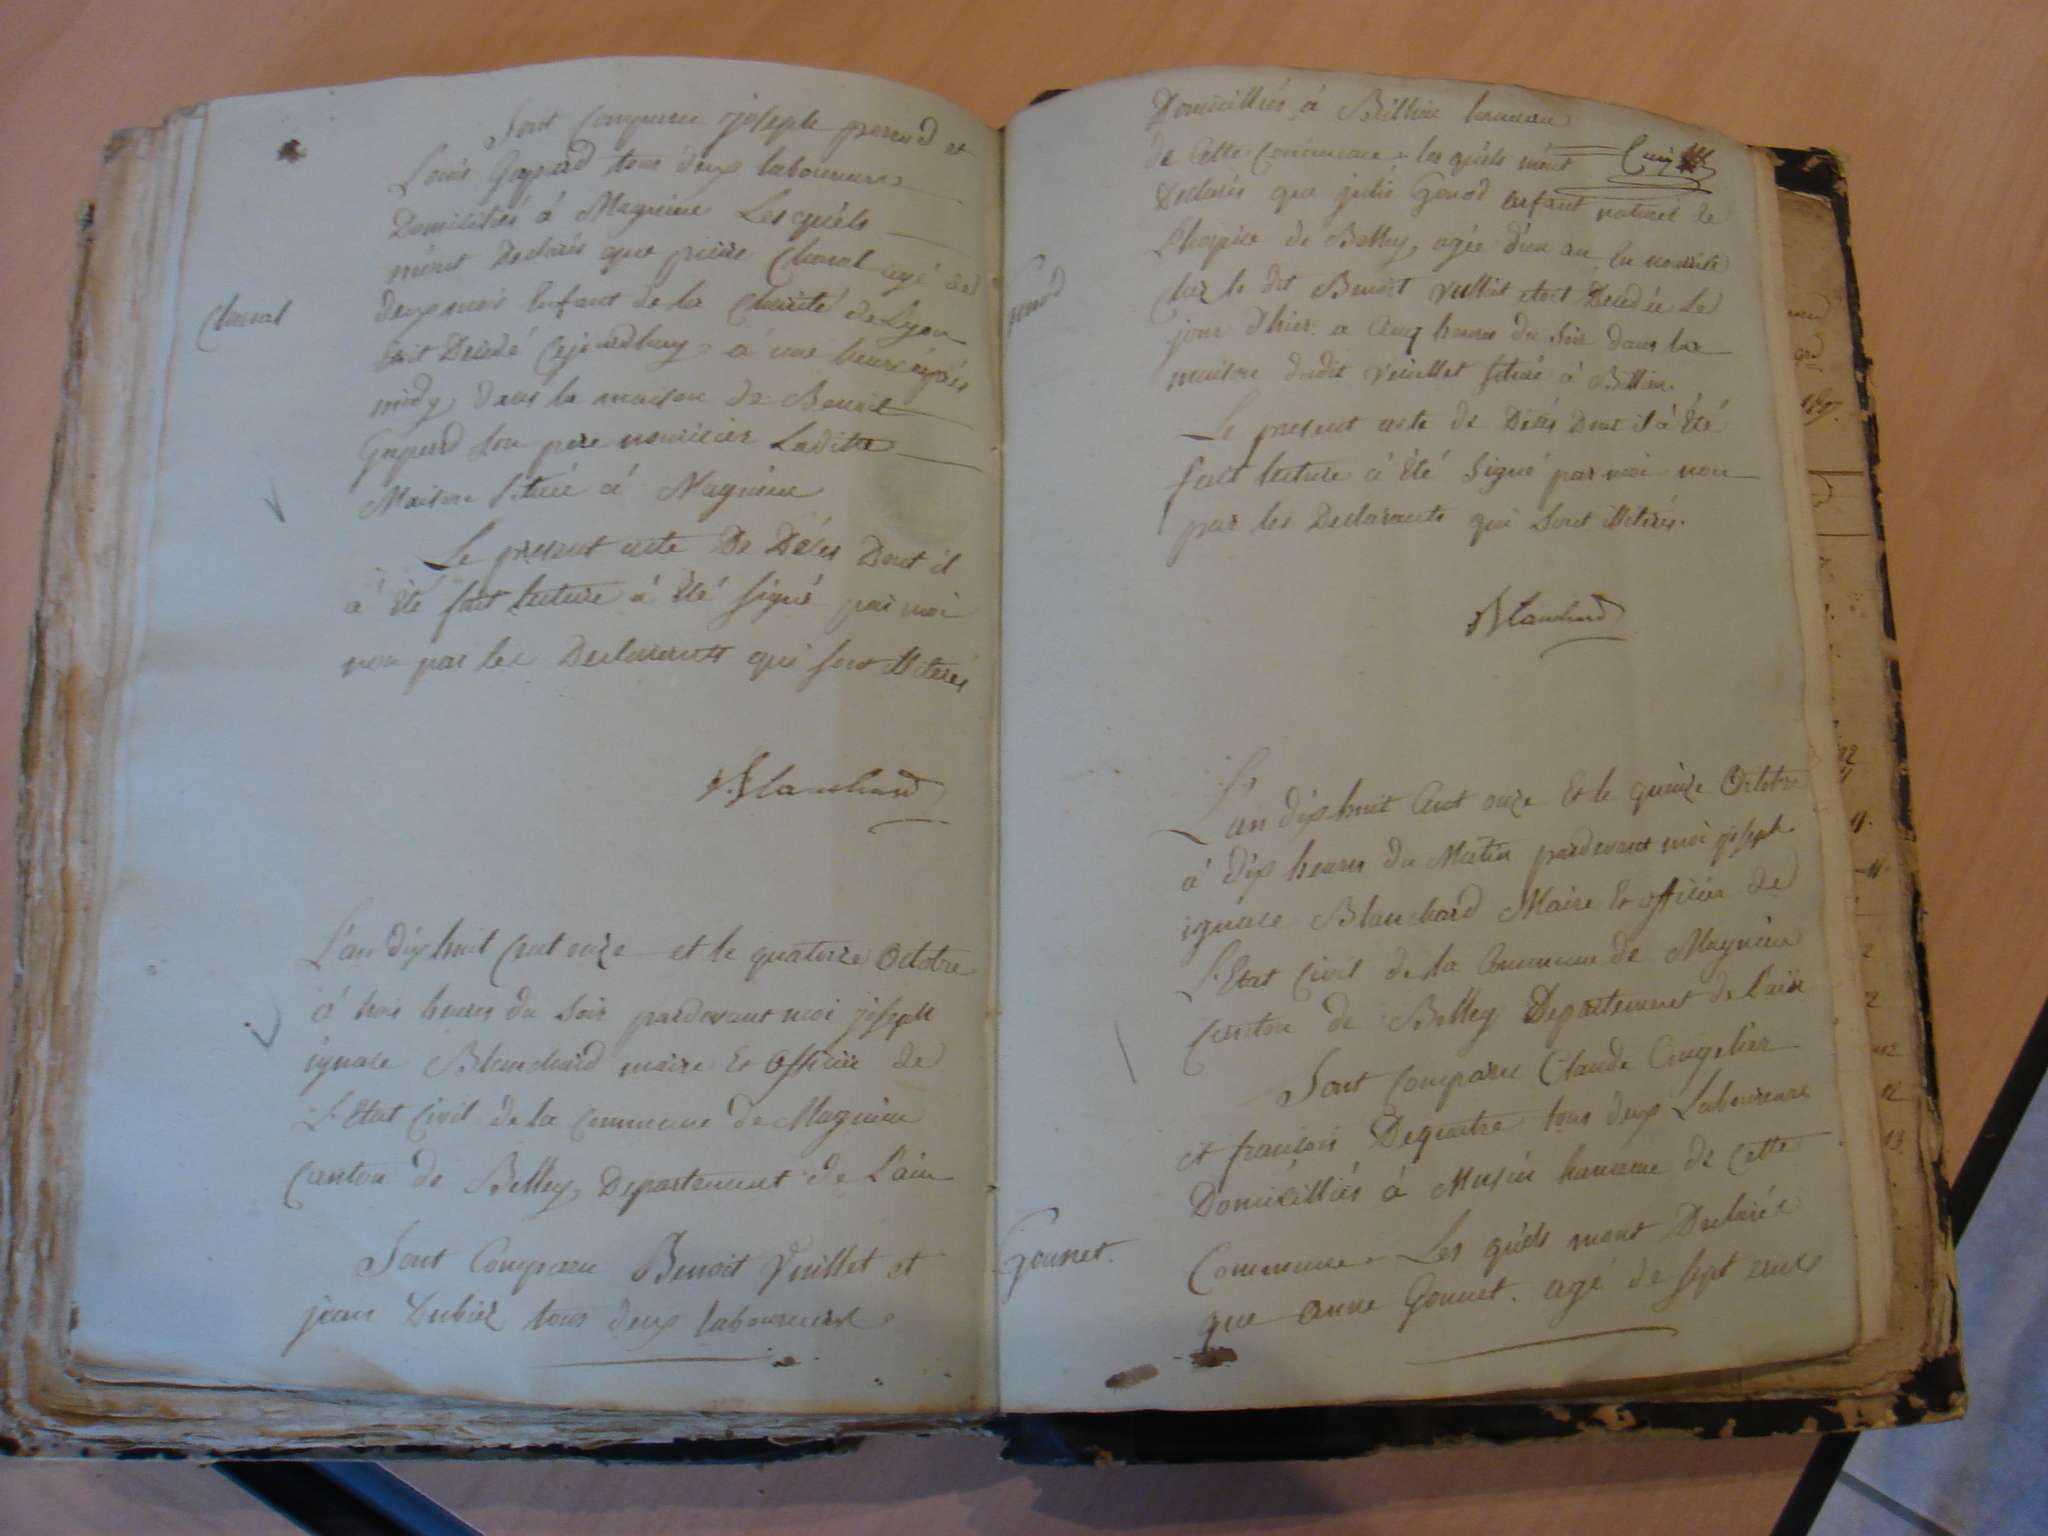 Sont comparu joseph perrod et
Louis Gapard tous deux laboureurs
Domiciliés á Magnieu Les quéls
mónt Declarés que pierre Chanal agé de
deux mois Enfant de la Charité de Lyon
Chanal
soit Décédé Cejourdhuy à une heure aprés
midy dans la maison de Benoit
Gapard son pere nouricier Laditte
Maison située á Magnieu
Le present acte De Décés Dont il
á été fait lecture á été signé par moi
non par les Declarants qui sont illiterés
Blanchard
L'an dix huit cent onze et le quatorze Octobre
á trois heures du soir pardevant moi joseph
ignace Blanchard maire et officier de
L'Etat Civil de la Commune de Magnieu
Canton de Belley, Departement de L'ain
Sont Comparu Benoit Vuillet et
jean Dubiez tous deux laboureurs
Domicilliés á Billieu hameau
de Cette Commune les quéls mónt
Declarés que julie Genod enfant naturel de
L'hospice de Belley, agée d'un an En nourice
Genod
Chez le dit Benoit Vuillet étoit Décedée Le
jour d'hier a cinq heures du soir dans la
maison dudit Vuillet située á Billieu.
Le present acte de Décés Dont il á Été
fait lecture á Été Signé par moi non
par les Declarants qui sont illiterés.
Blanchard
L'an dix huit cent onze Et le quinze Octobre
á dix heures du Matin pardevant moi joseph
ignace Blanchard Maire Et officier de
L'Etat Civil de la Commune de Magnieu
Canton de Belley Departement de L'ain
Sont Comparu Claude
et francois Dequatre tous deux Laboureurs
Domicilliés á Musin hameau de Cette
Commune. Les quéls mont Declarés
Gonnet.
que anne Gonnet. agé de sept ans